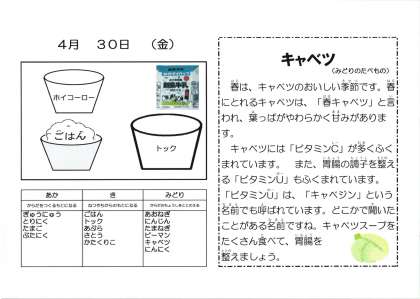 4月 30日 (金)
ホイコーロー
ごはん
トック
あか き みどり
からだをつくるもとになる ねつやちからのもとになる からだのちょうしをととのえる
ぎゅうにゅう ごはん あおねぎ
とりにく トック にんじん
たまご あぶら たまねぎ
ぶたにく さとう ピーマン
かたくりこ キャベツ
にんにく
キャベツ
(みどりのたべもの)
春は、キャベツのおいしい季節です。春
にとれるキャベツは、「春キャベツ」と言
われ、葉っぱがやわらかく甘みがありま
す。
キャベツには「ビタミンC」が多くふく
まれています。 また、胃腸の調子を整え
る「ビタミンU」もふくまれています。
「ビタミンU」は、「キャベジン」という
名前でも呼ばれています。どこかで聞いた
ことがある名前ですね。キャベツスープを
たくさん食べて、胃腸を
整えましょう。